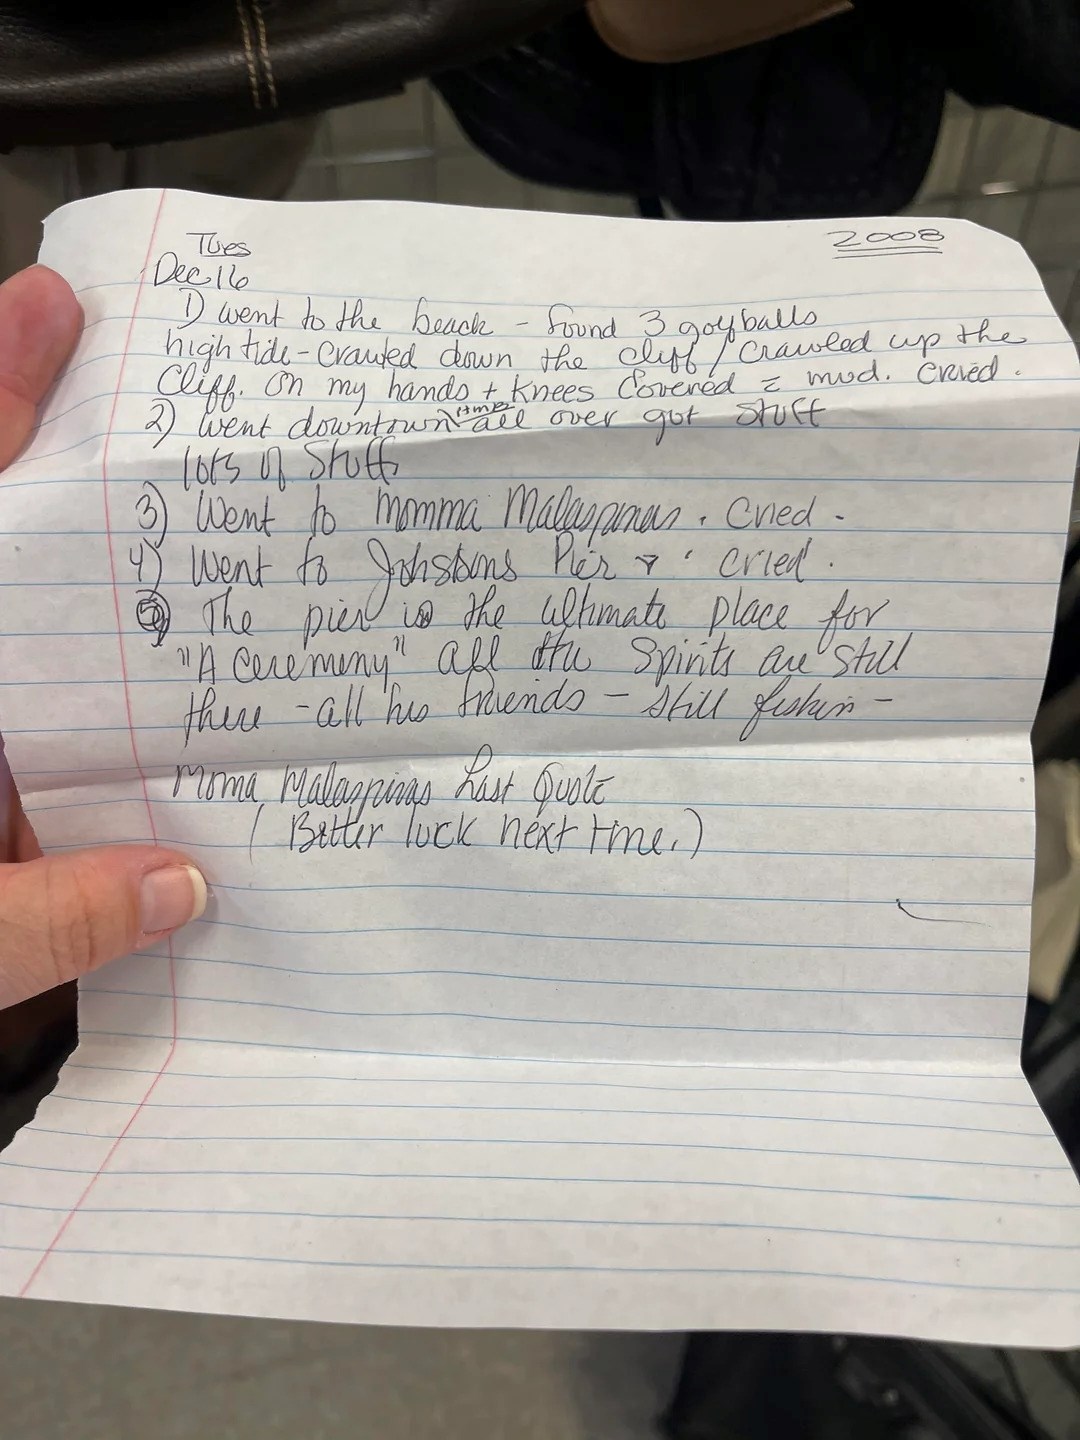 Tues
2008
Dec 16
1) went to the beach - found 3 golfballs
high tide - crawled down the cliff / crawled up the
Cliff. On my hands + knees Covered c mud. cried.
2) Went downtown all over got stuff
lots of Stuff
3) Went to Momma Malaspinas. Cried -
4) Went to Johstons Pier cried.
5) The pier is the ultimate place for
"A Ceremeny" all the Spirits are still
there - all his friends - still fishin -
Moma Malaspinas Last Quote
(Better luck next time.)